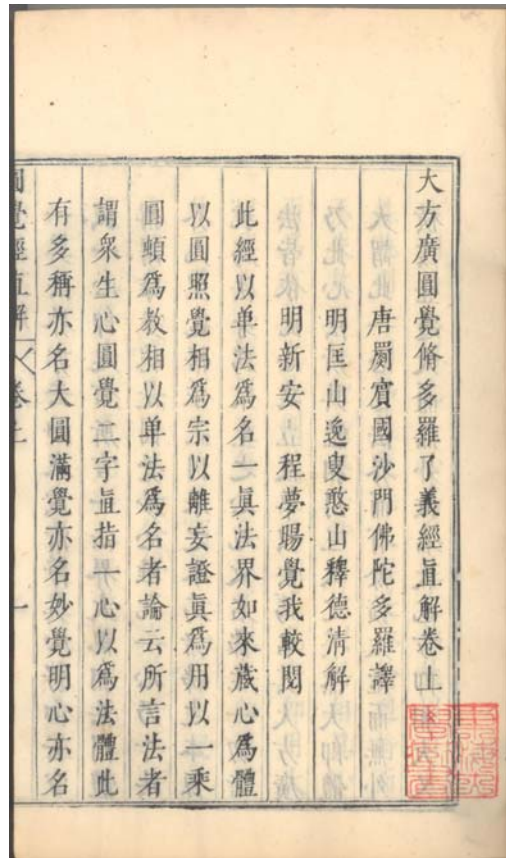 大方廣圓覺脩多羅了義經直解卷上
唐罽賓國沙門佛陀多羅譯
明匡山逸叟憨山釋德清解
明新安　程夢暘覺我較閱
此經以单法爲名一眞法界如來藏心爲體
以圓照覺相爲宗以離妄證眞爲用以一乘
圓頓爲教相以单法爲名者論云所言法者
謂衆生心圓覺二字直指一心以爲法體此
有多稱亦名大圓滿覺亦名妙覺明心亦名
圓覺經直解　卷上　一